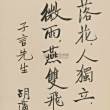 落花人獨立，
微雨燕雙飛
子言先生
胡適